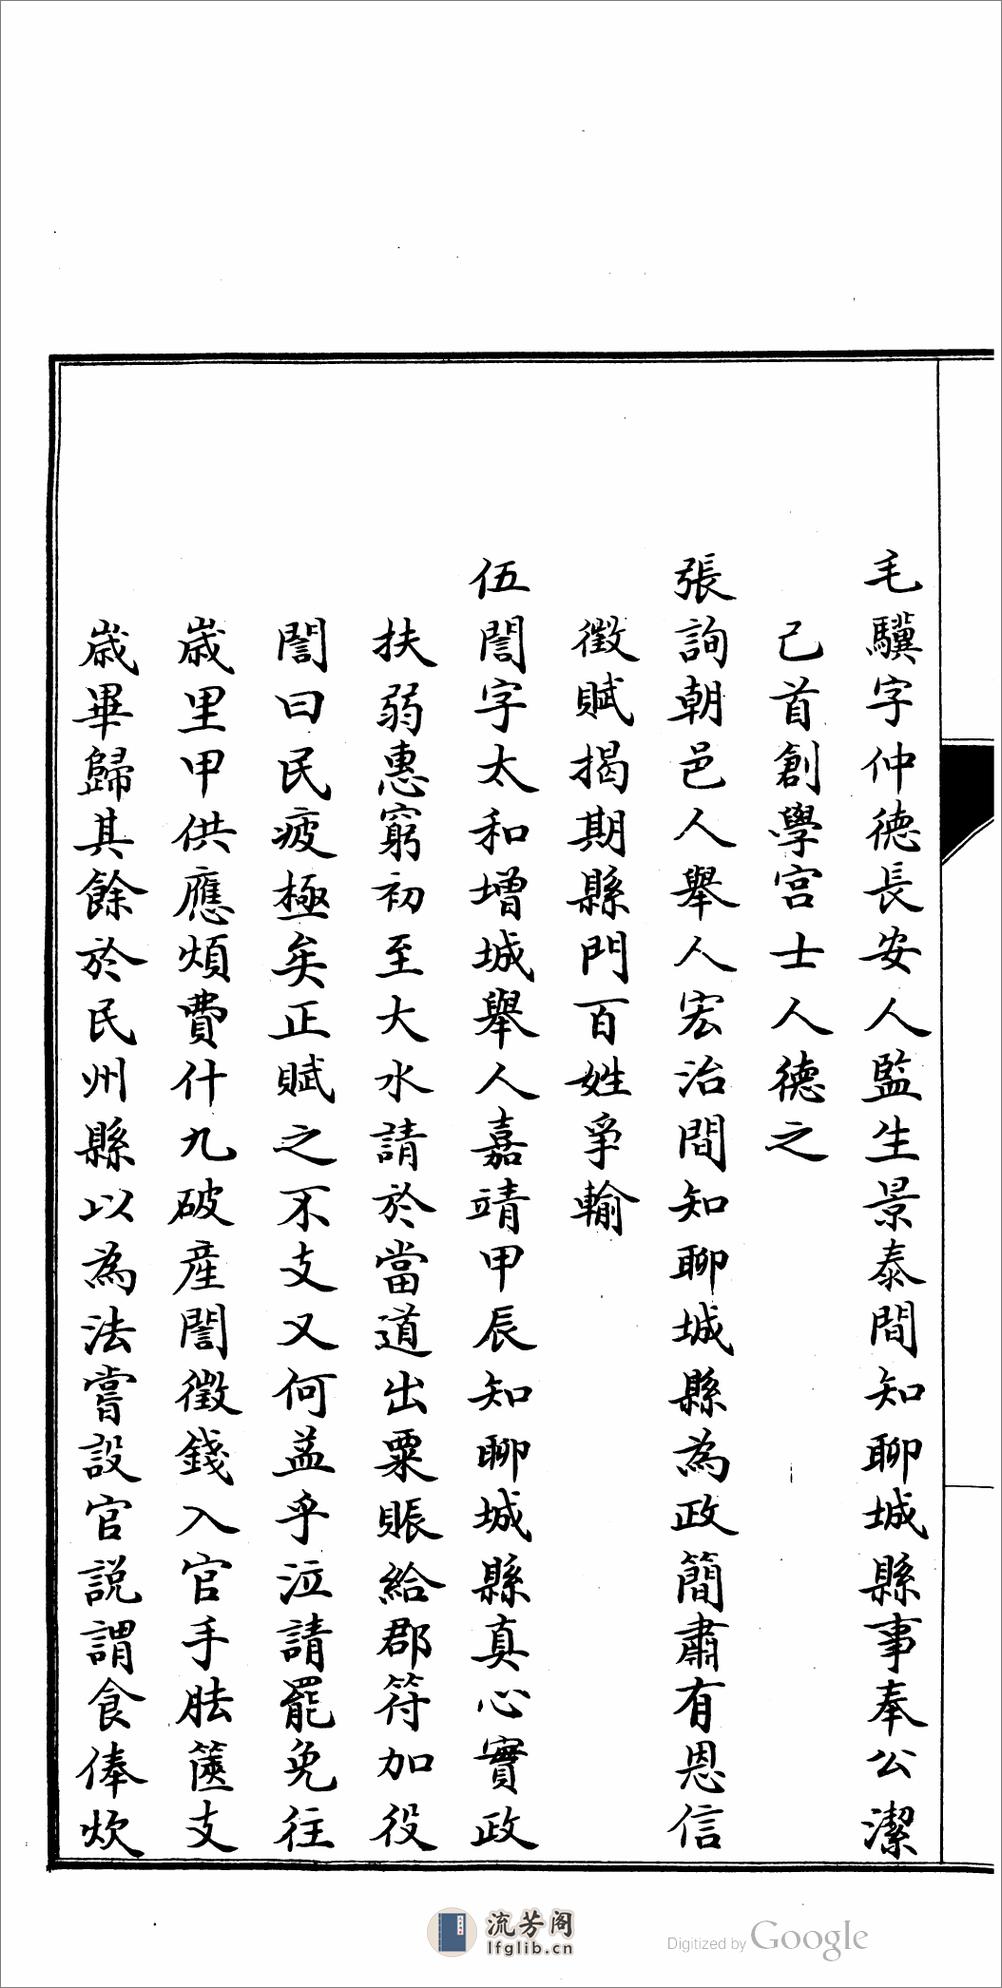 毛驥字仲德長安人監生景泰間知聊城縣事奉公潔
己首創學宫士人德之
張詢朝邑人舉人宏治間知聊城縣為政簡肅有恩信
徵賦揭期縣門百姓爭輸
伍誾字太和增城舉人嘉靖甲辰知聊城縣真心實政
扶弱惠窮初至大水請於當道出粟賑給郡符加役
誾曰民疲極矣正賦之不支又何益乎泣請罷免往
歲里甲供應煩費什九破産誾徵錢入官手胠篋支
歲畢歸其餘於民州縣以為法嘗設官説謂食俸炊
流芳阁
lfglib.cn
Digitized by Google